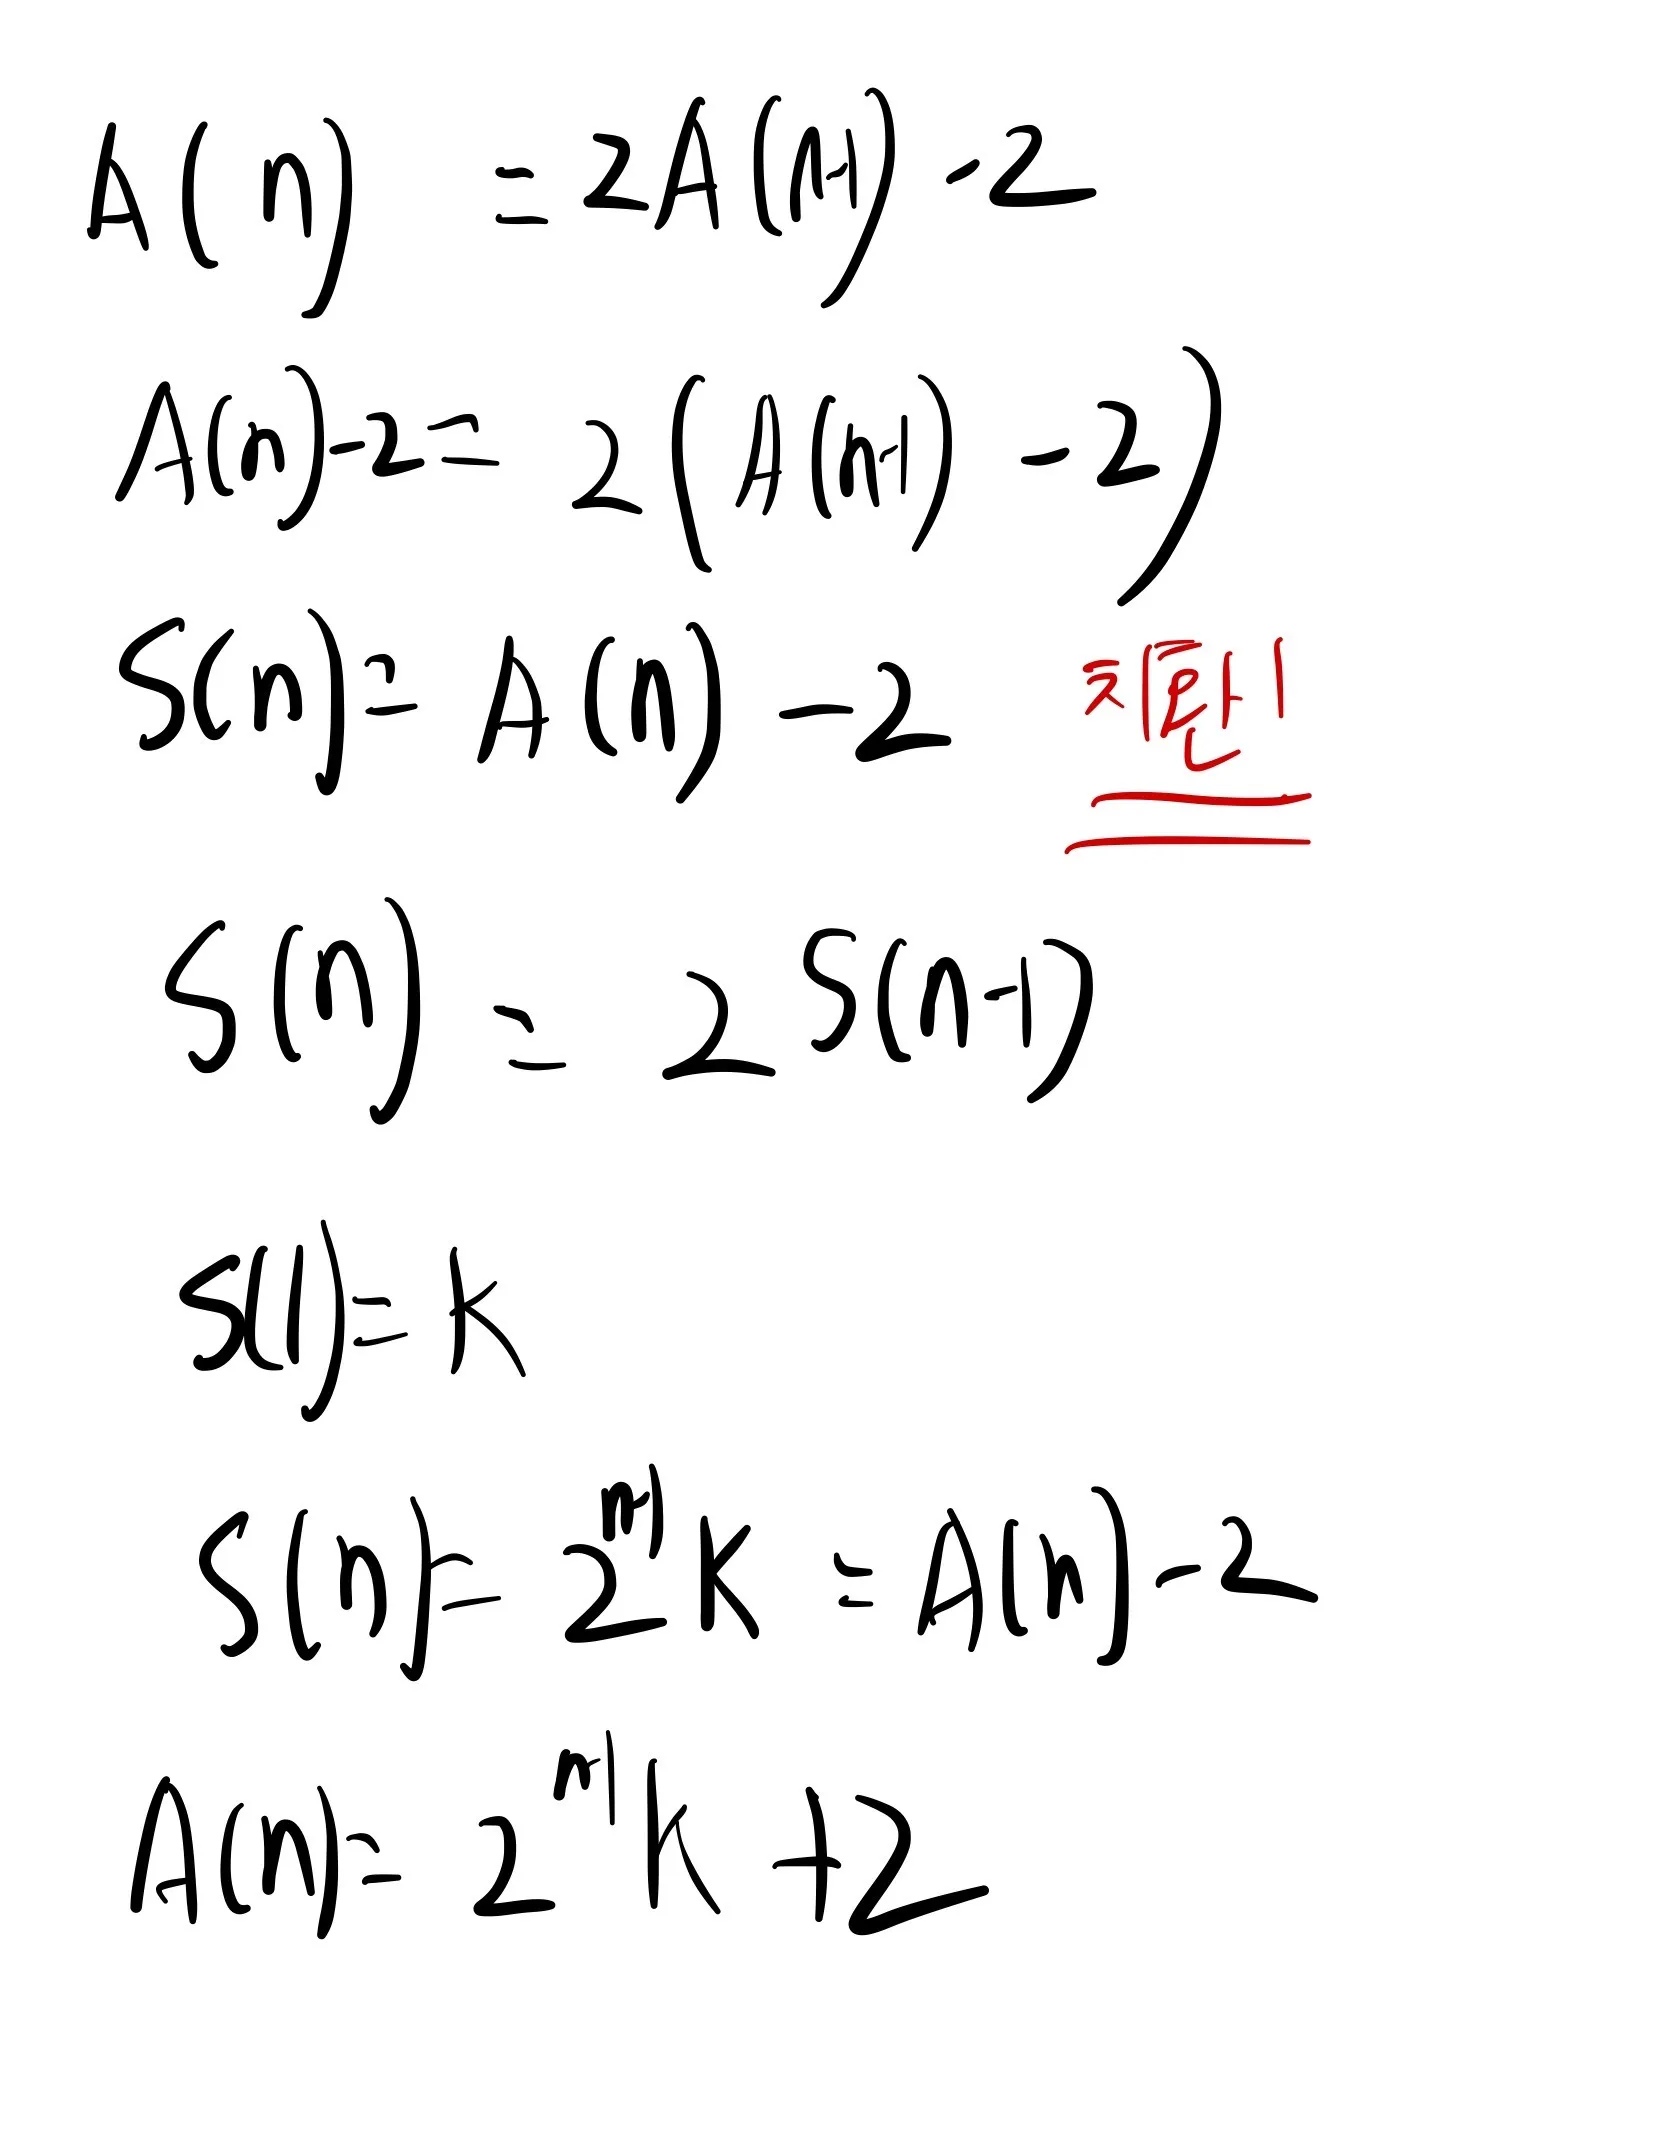 A(n) = 2A(n-1) - 2
A(n) - 2 = 2(A(n-1) - 2)
S(n) = A(n) - 2 치환!
S(n) = 2S(n-1)
S(1) = K
S(n) = 2^{n-1} K = A(n) - 2
A(n) = 2^{n-1} K + 2